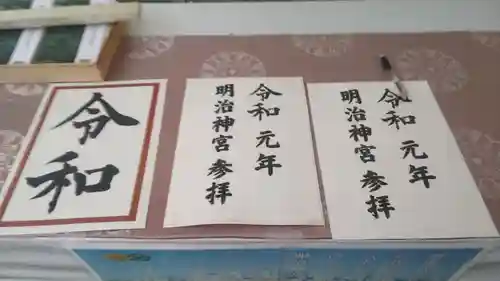 令和
令和元年
明治神宮参拝
令和元年
明治神宮参拝